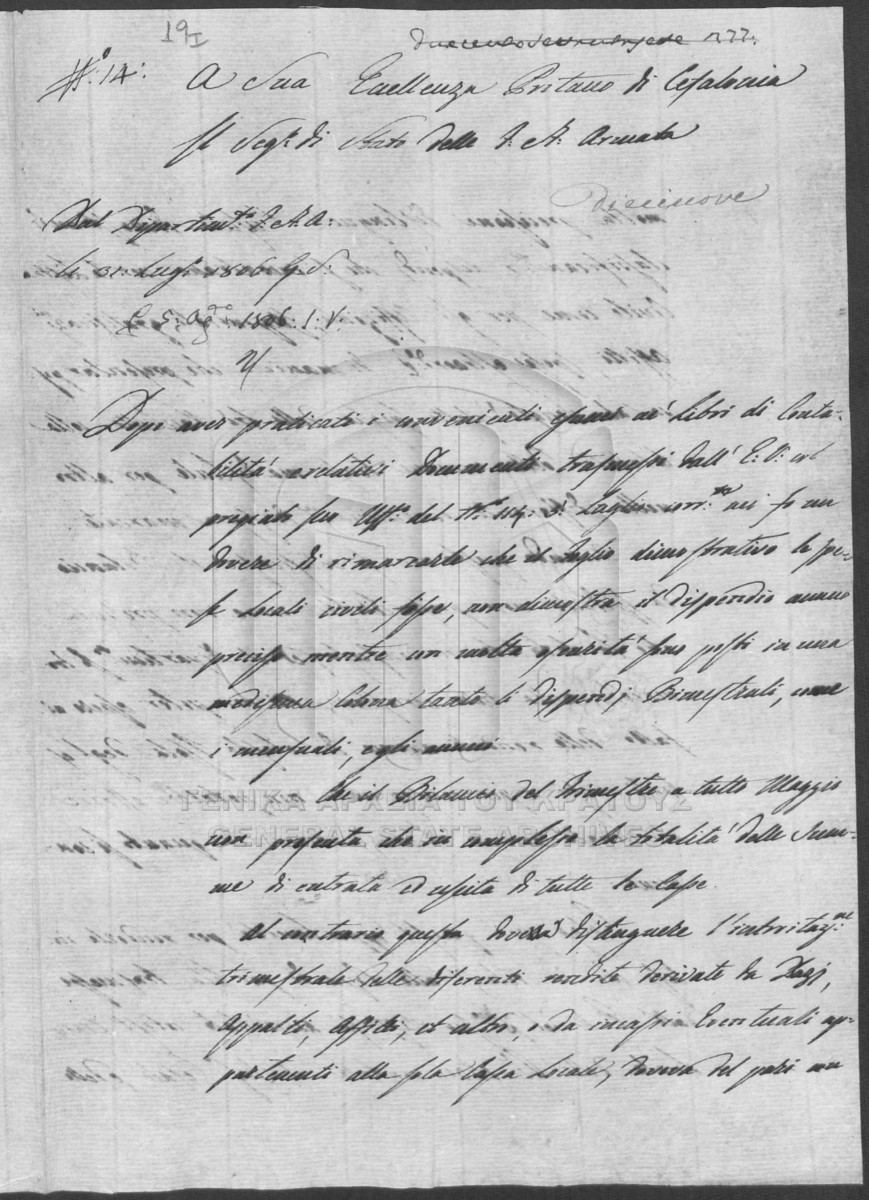 19 I
277.
N.º 14:
A Sua Eccellenza Pritano di Cefalonia
Il Seg.º di Stato delle F. A. Armata
diecinove
Dal Dipartim.to F. A. A.
li 31. Lug.º 1806. S. N.
E 5: Ag.to 1806: S: V:
Dopo aver praticati i convenienti esami ne' Libri di Conta-
bilità e relativi Documenti trasmessi dall' E: V: col
pregiato suo Uff.º del N.º 114: 3. Luglio corr.te mi fo un
dovere di rimarcarle che il foglio dimostrativo le spe-
se Locali civili fisse, non dimostra il dispendio annuo
preciso mentre con molta oscurità sono posti in una
medesima Colona tanto li dispendj Bimestrali, come
i mensuali, e gli annui.
Che il Bilancio del Trimestre a tutto Maggio
non presenta che in complesso la totalità delle Som-
me di entrata ed uscita di tutte le Casse.
Al contrario questo dovea distinguere l'introitaz.ne
trimestrale delle diferenti rendite derivate da Dazj,
Appalti, Affitti, et altro, e da incassi Eventuali ap-
partenenti alla sola Cassa Locale, doveva del pari un
ΓΕΝΙΚΑ ΑΡΧΕΙΑ ΤΟΥ ΚΡΑΤΟΥΣ
GENERAL STATE ARCHIVES